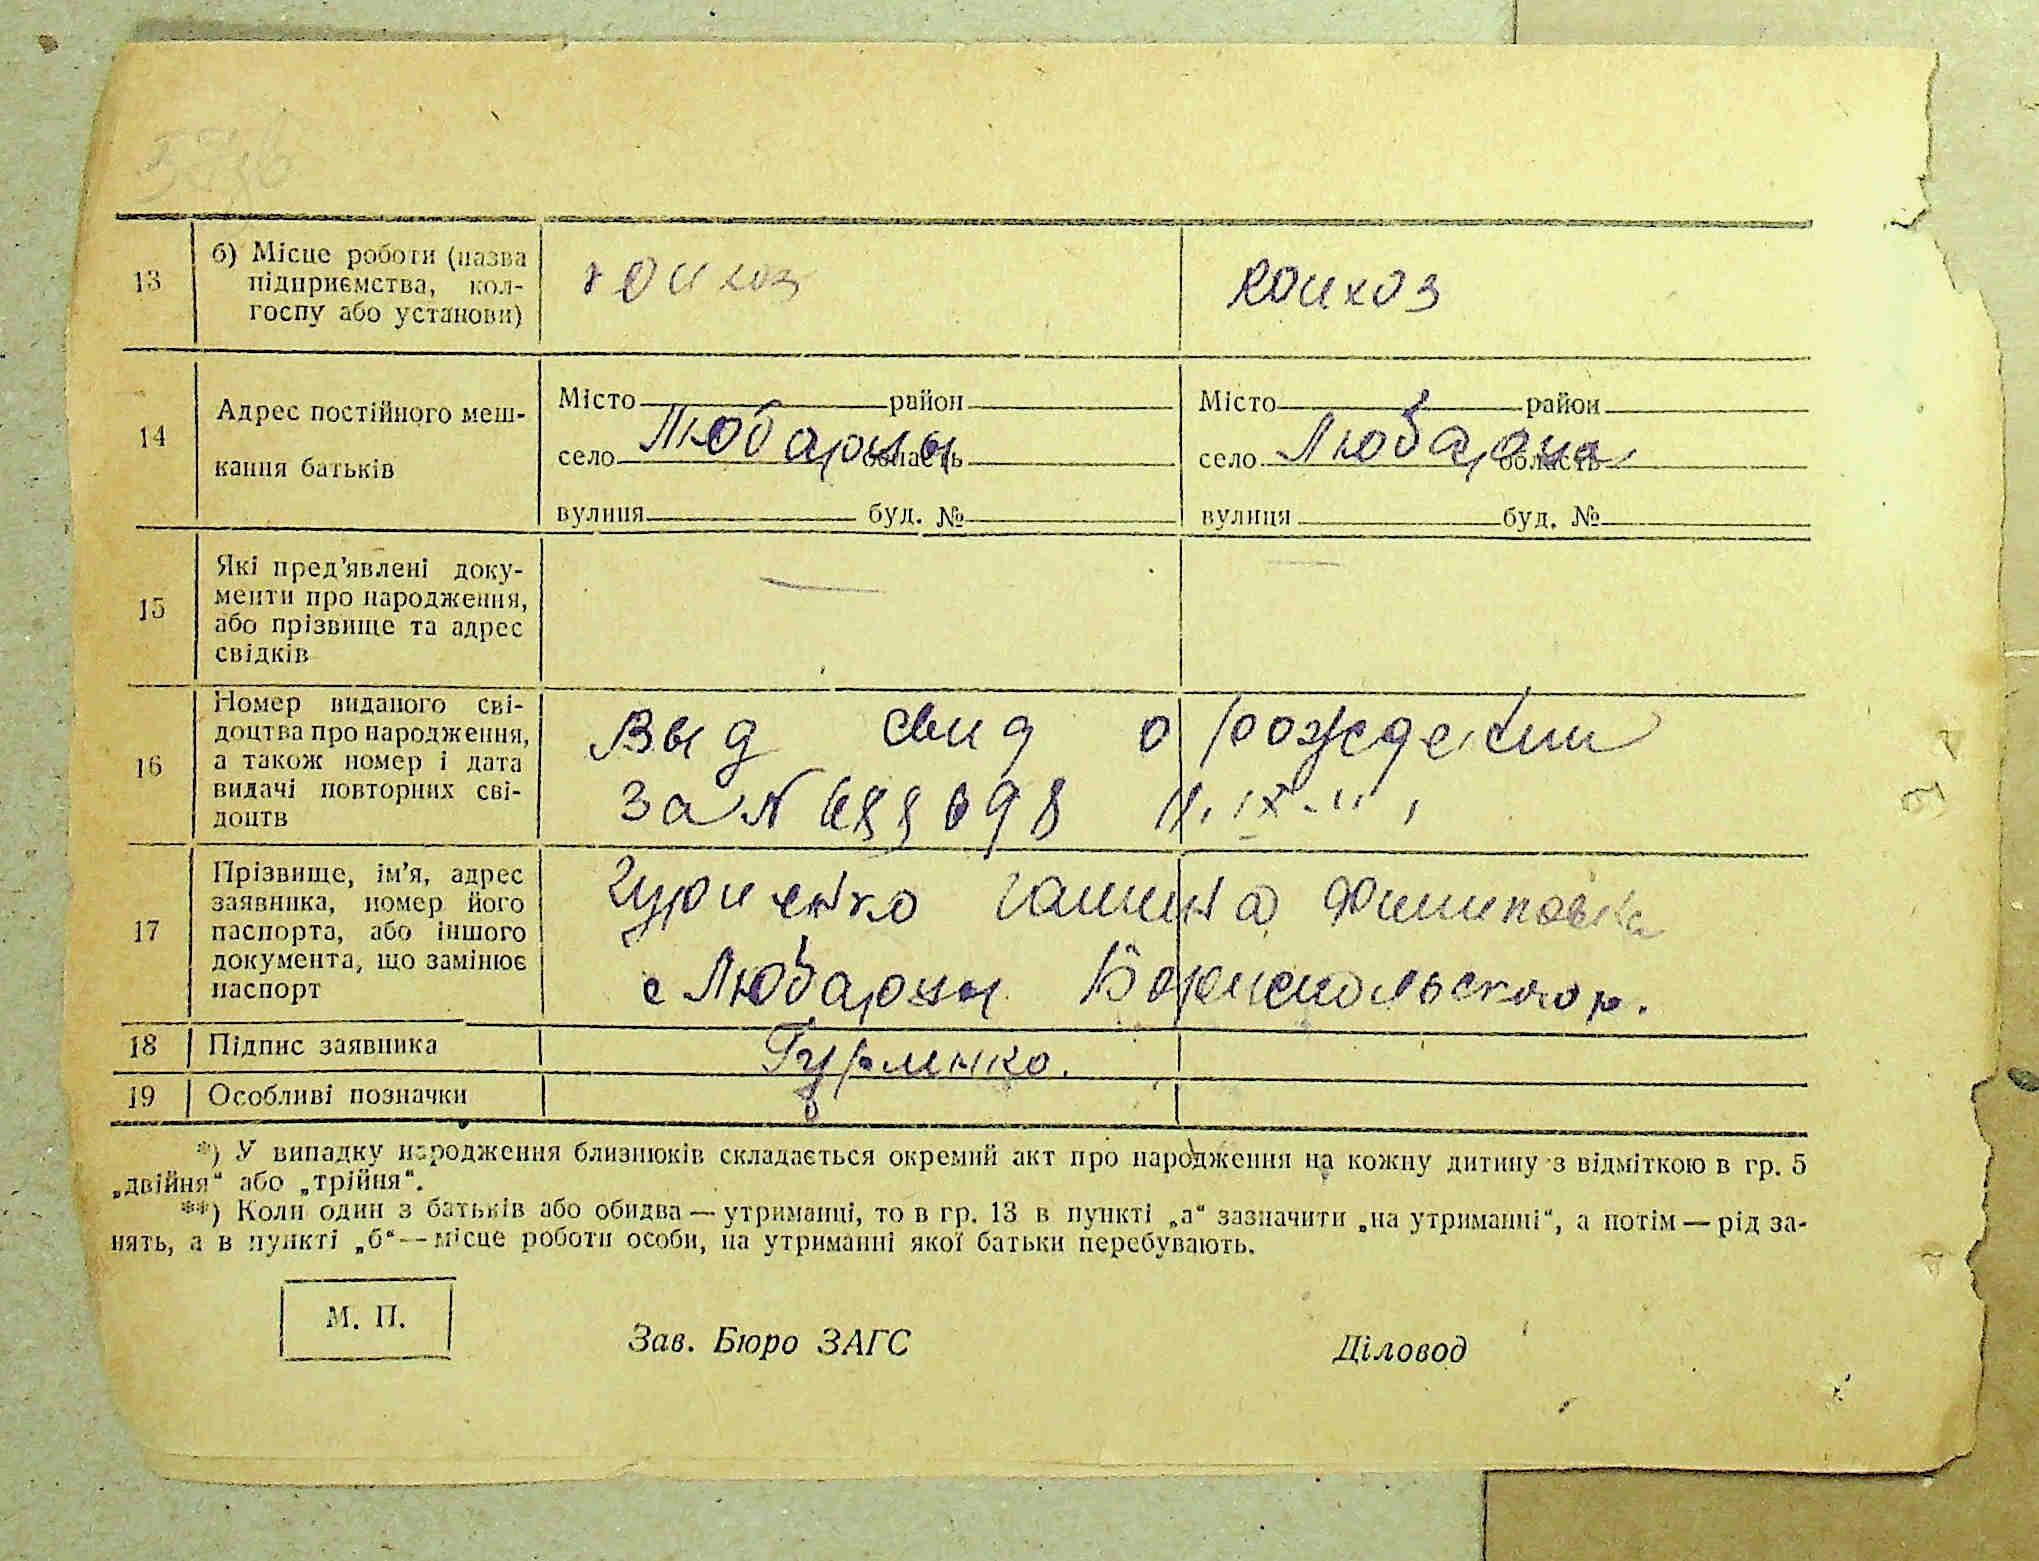 13
б) Місце роботи (назва
підприємства, кол-
госпу або установи)
колхоз
колхоз
14
Адрес постійного меш-
кання батьків
Місто район
село Любарцы область
вулиця буд. №
Місто район
село Любарцы область
вулиця буд. №
15
Які пред'явлені доку-
менти про народження,
або прізвище та адрес
свідків
—
—
16
Номер виданого сві-
доцтва про народження,
а також номер і дата
видачі повторних сві-
доцтв
Выд свид о рождении
За N
17
Прізвище, ім'я, адрес
заявника, номер його
паспорта, або іншого
документа, що замінює
паспорт
Гурленко Галина Филиповна
с Любарцы Бориспольского р.
18
Підпис заявника
Гурленко.
19
Особливі позначки
*) У випадку народження близнюків складається окремий акт про народження на кожну дитину з відміткою в гр. 5
„двійня“ або „трійня“.
**) Коли один з батьків або обидва — утриманці, то в гр. 13 в пункті „а“ зазначити „на утриманні“, а потім — рід за-
нять, а в пункті „б“ — місце роботи особи, на утриманні якої батьки перебувають.
М. П.
Зав. Бюро ЗАГС
Діловод